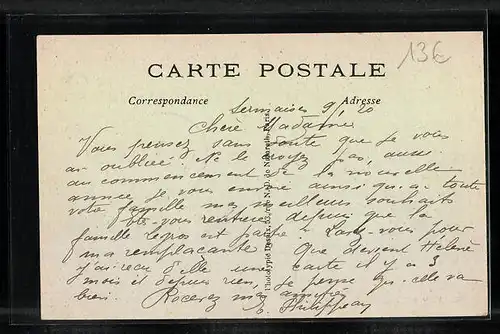 13€
CARTE POSTALE
Correspondance
Adresse
Sermaises 9/ 20
Chère Madame
Vous pensez sans doute que je vous
ai oublié. Ne le croyez pas, aussi
au commencement de la nouvelle
année je vous envoie ainsi qu'à toute
votre famille mes meilleurs souhaits
êtes-vous rentrée depuis que la
famille est partie - vous pour
ma remplaçante Que devient Hélène
j'ai reçu d'elle une carte il y a 3
mois et depuis rien, je pense que celle va
bien. Recevez mes amitiés
Philippeau
Phototypie Desaix, rue N.-D. de Nazareth, Paris